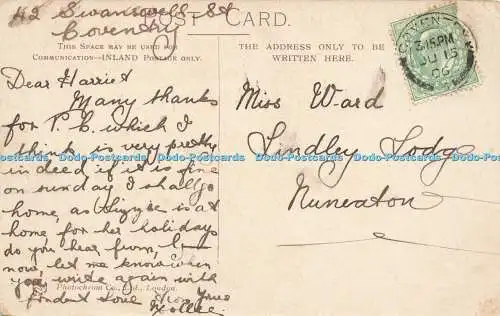 42 Swanswell St
Coventry
POST CARD.
THIS SPACE MAY BE USED FOR
COMMUNICATION—INLAND POSTAGE ONLY.
THE ADDRESS ONLY TO BE
WRITTEN HERE.
COVENTRY
3.15PM
JU 15
06
Dear Harriet
Many thanks
for P.C. which I
think is very pretty
indeed, if it is fine
on sunday I shall go
home, as Lizzie is at
home for her holidays
do you hear from
now, let me know when
you write again with
fondest love from yours
Pollie.
Miss Ward
Lindley Lodge
Nuneaton
Photochrom Co., Ltd., London.
Dodo-Postcards Dodo-Postcards Dodo-Postcards Dodo-Postcards Dodo-Postcards Dodo-Postcards